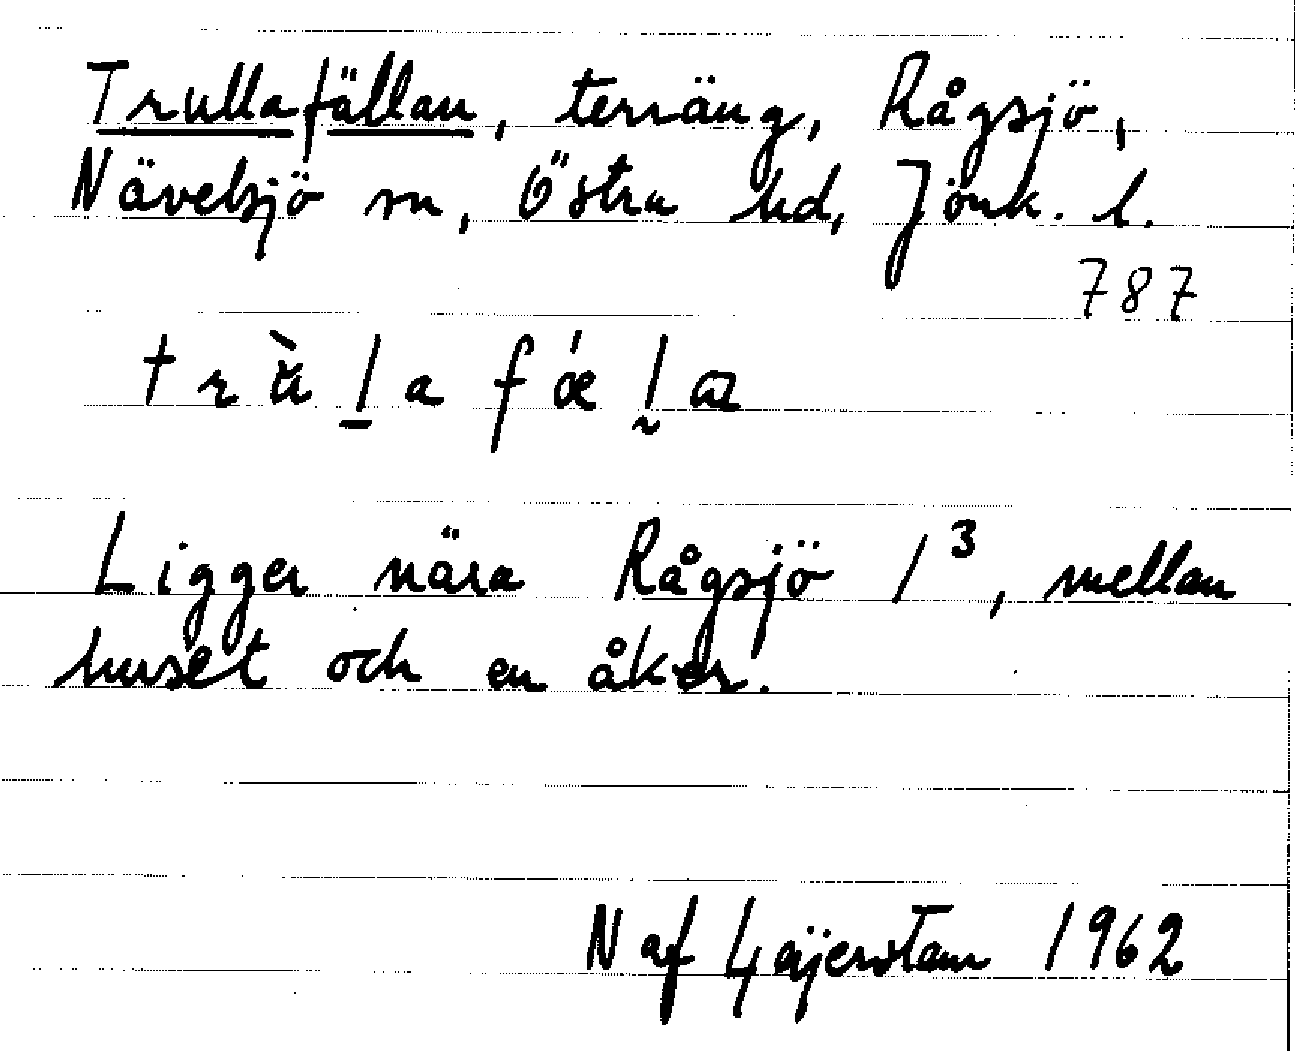 Trullafällan, terräng, Rågsjö,
Nävelsjö sn, Östra hd, Jönk. l.
787
Ligger nära Rågsjö 1³, mellan
huset och en åker.
N af Geijerstam 1962